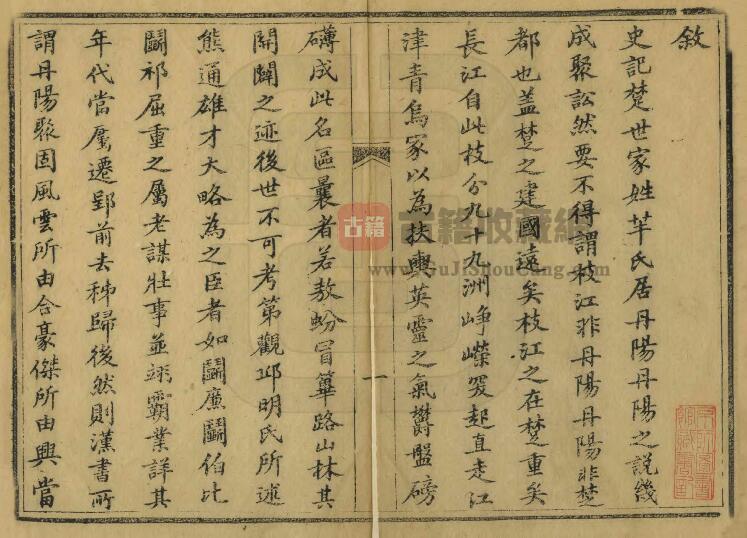 敘
史記楚世家姓芈氏居丹陽丹陽之說幾
成聚訟然要不得謂枝江非丹陽丹陽非楚
都也盖楚之建國遠矣枝江之在楚重矣
長江自此枝分九十九洲崢嶸突起直走江
津青烏家以為扶輿英靈之氣鬱盤磅
礴成此名區曩者若敖蚡冒篳路山林其
開闢之迹後世不可考第觀邱明氏所述
熊通雄才大略為之臣者如鬭廉鬭伯比
鬭祁屈重之屬老謀壯事並翊霸業詳其
年代當屬遷郢前去秭歸後然則漢書所
謂丹陽聚固風雲所由合豪傑所由興當
一
古籍
古籍收藏網
www.GuJiShouCang.com